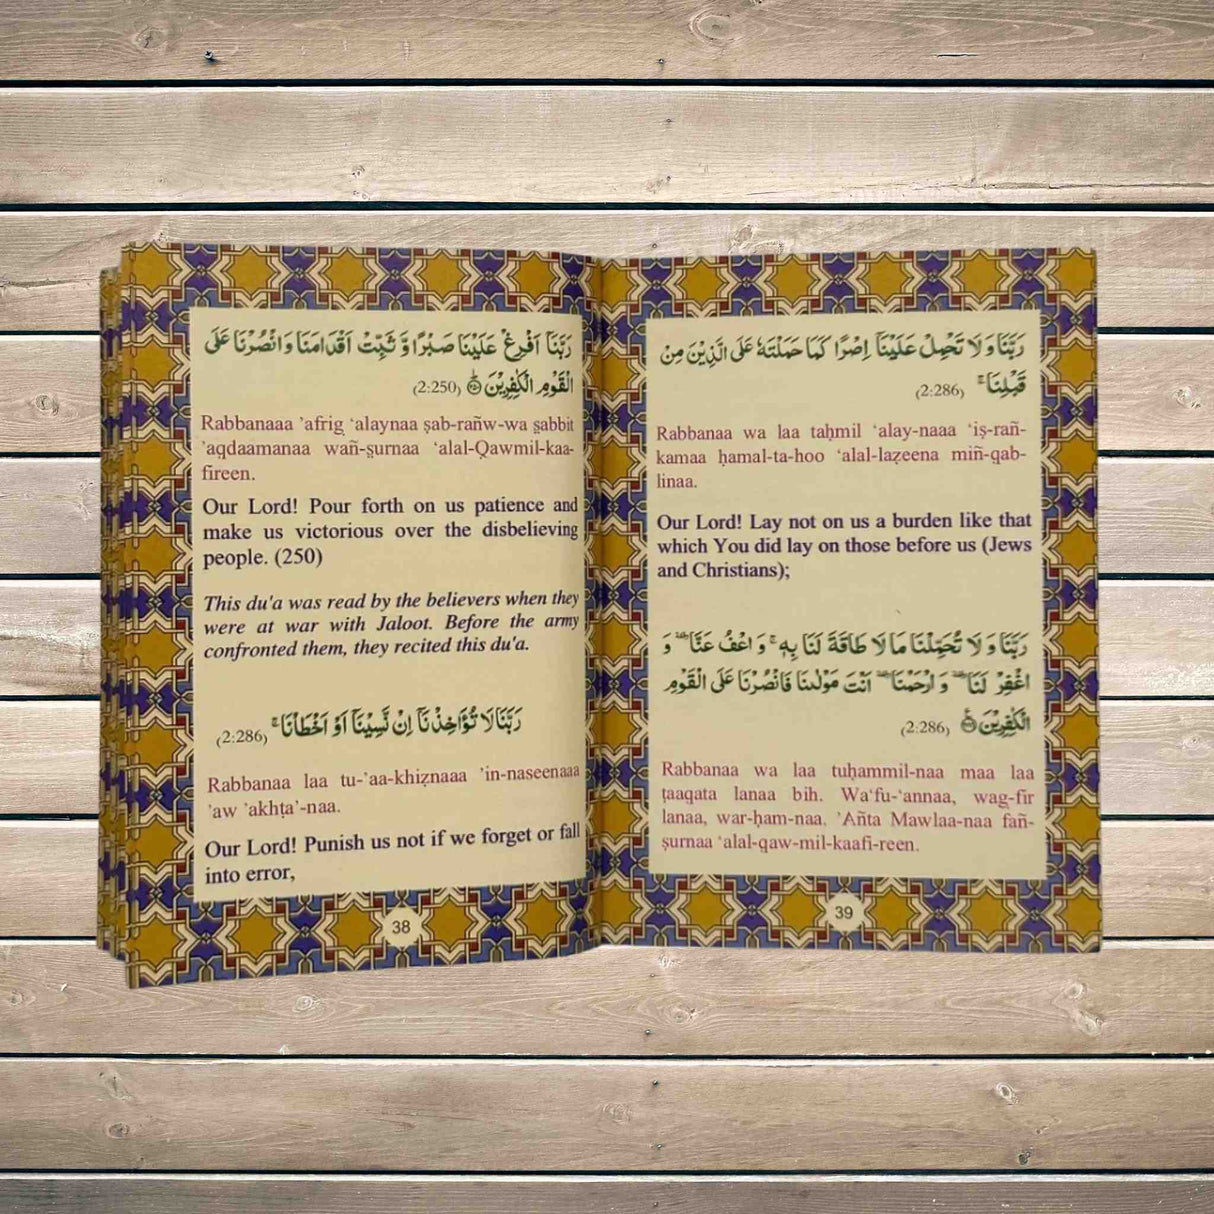 رَبَّنَاۤ اَفْرِغْ عَلَيْنَا صَبْرًا وَّ ثَبِّتْ اَقْدَامَنَا وَانْصُرْنَا عَلَى
الْقَوْمِ الْكٰفِرِيْنَ ﴿۲۵۰﴾ؕ (2:250)
Rabbanaaa ’afrig ‘alaynaa ṣab-rañw-wa s̱abbit
’aqdaamanaa wañ-ṣurnaa ‘alal-Qawmil-kaa-
fireen.
Our Lord! Pour forth on us patience and
make us victorious over the disbelieving
people. (250)
This du'a was read by the believers when they
were at war with Jaloot. Before the army
confronted them, they recited this du'a.
رَبَّنَا لَا تُؤَاخِذْنَاۤ اِنْ نَّسِيْنَاۤ اَوْ اَخْطَاْنَا ۚ (2:286)
Rabbanaa laa tu-’aa-khiẕnaaa ’in-naseenaaa
’aw ’akhṭa’-naa.
Our Lord! Punish us not if we forget or fall
into error,
38
رَبَّنَا وَ لَا تَحْمِلْ عَلَيْنَاۤ اِصْرًا كَمَا حَمَلْتَهٗ عَلَى الَّذِيْنَ مِنْ
قَبْلِنَا ۚ (2:286)
Rabbanaa wa laa taḥmil ‘alay-naaa ‘iṣ-rañ-
kamaa ḥamal-ta-hoo ‘alal-laẕeena miñ-qab-
linaa.
Our Lord! Lay not on us a burden like that
which You did lay on those before us (Jews
and Christians);
رَبَّنَا وَ لَا تُحَمِّلْنَا مَا لَا طَاقَةَ لَنَا بِهٖ ۚ وَ اعْفُ عَنَّا ۥ وَ
اغْفِرْ لَنَا ۥ وَ ارْحَمْنَا ۥ اَنْتَ مَوْلٰىنَا فَانْصُرْنَا عَلَى الْقَوْمِ
الْكٰفِرِيْنَ (2:286)
Rabbanaa wa laa tuḥammil-naa maa laa
ṭaaqata lanaa bih. Wa‘fu-‘annaa, wag-fir
lanaa, war-ḥam-naa. ’Añta Mawlaa-naa fañ-
ṣurnaa ‘alal-qaw-mil-kaafi-reen.
39